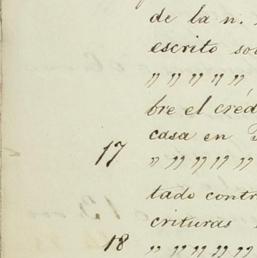 de la n.
escrito so
" " " " "
bre el créd
casa en
17 " " " " " "
tado contr
crituras
18 " " " " " "